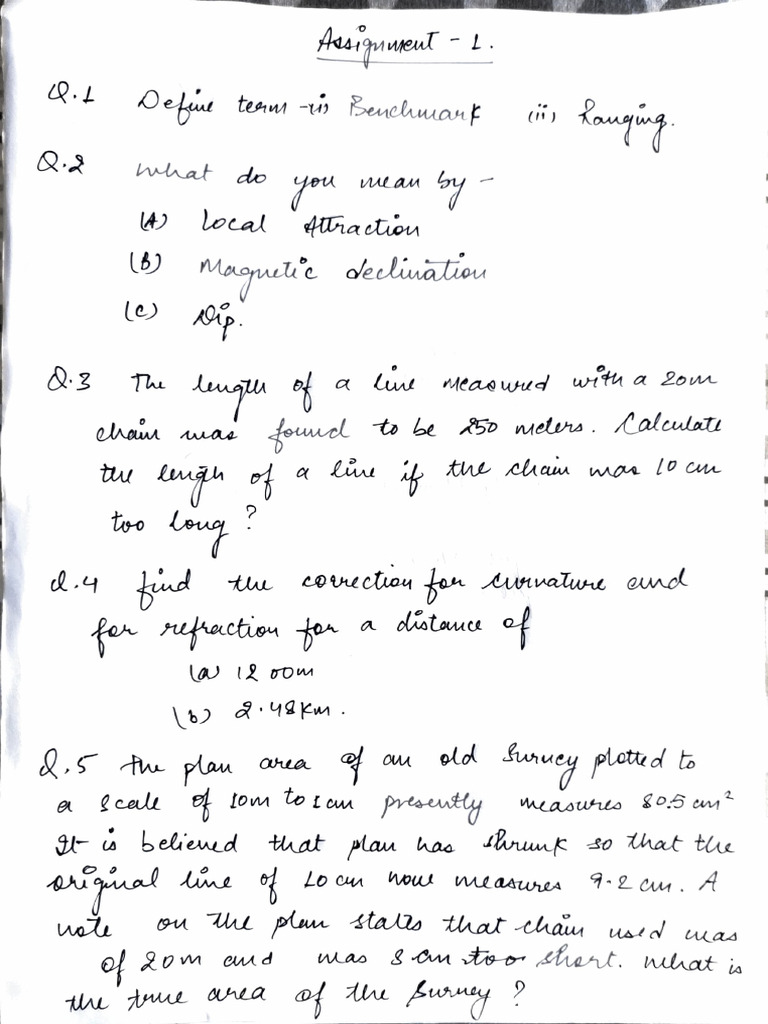 Assignment - 1.
Q.1 Define term -(i) Benchmark (ii) Ranging.
Q.2 What do you mean by -
(A) Local Attraction
(B) Magnetic declination
(C) Dip.
Q.3 The length of a line measured with a 20m
chain was found to be 250 meters. Calculate
the length of a line if the chain was 10 cm
too long ?
Q.4 find the correction for curvature and
for refraction for a distance of
(a) 1200m
(b) 2.48km.
Q.5 the plan area of an old survey plotted to
a scale of 10m to 1cm presently measures 80.5 cm²
It is believed that plan has shrunk so that the
original line of 10 cm now measures 9.2 cm. A
note on the plan states that chain used was
of 20m and was 8 cm too short. What is
the true area of the survey ?